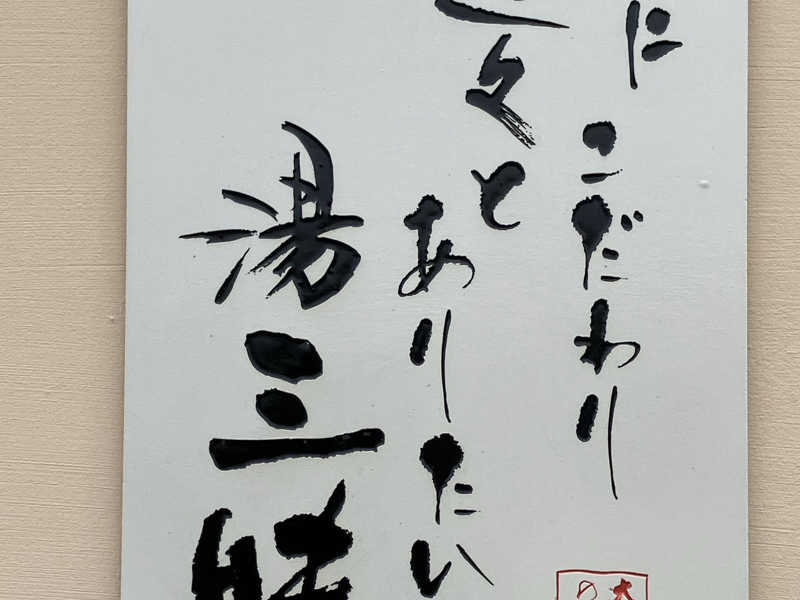 に
こだわり
々と
ありたい
湯三